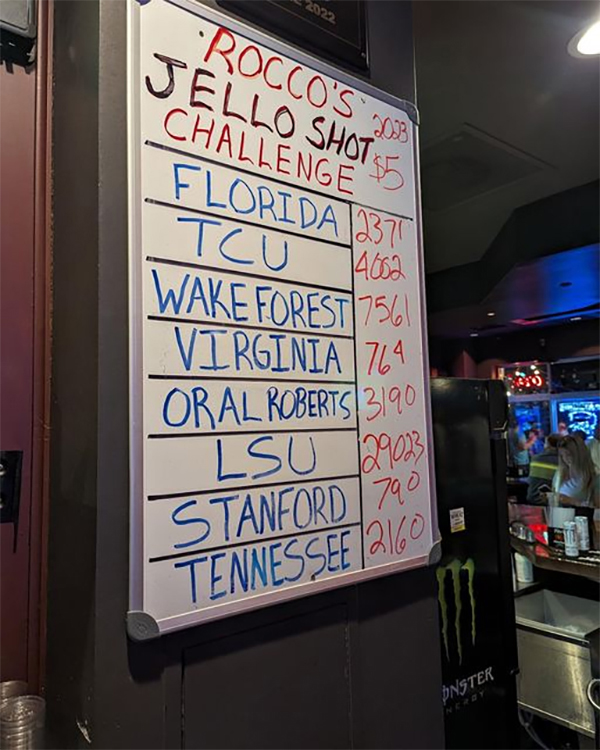 2022
ROCCO'S
JELLO SHOT 2023
CHALLENGE $5
FLORIDA 2371
TCU 4002
WAKE FOREST 7561
VIRGINIA 764
ORAL ROBERTS 3190
LSU 29023
STANFORD 790
TENNESSEE 2160
MONSTER
ENERGY